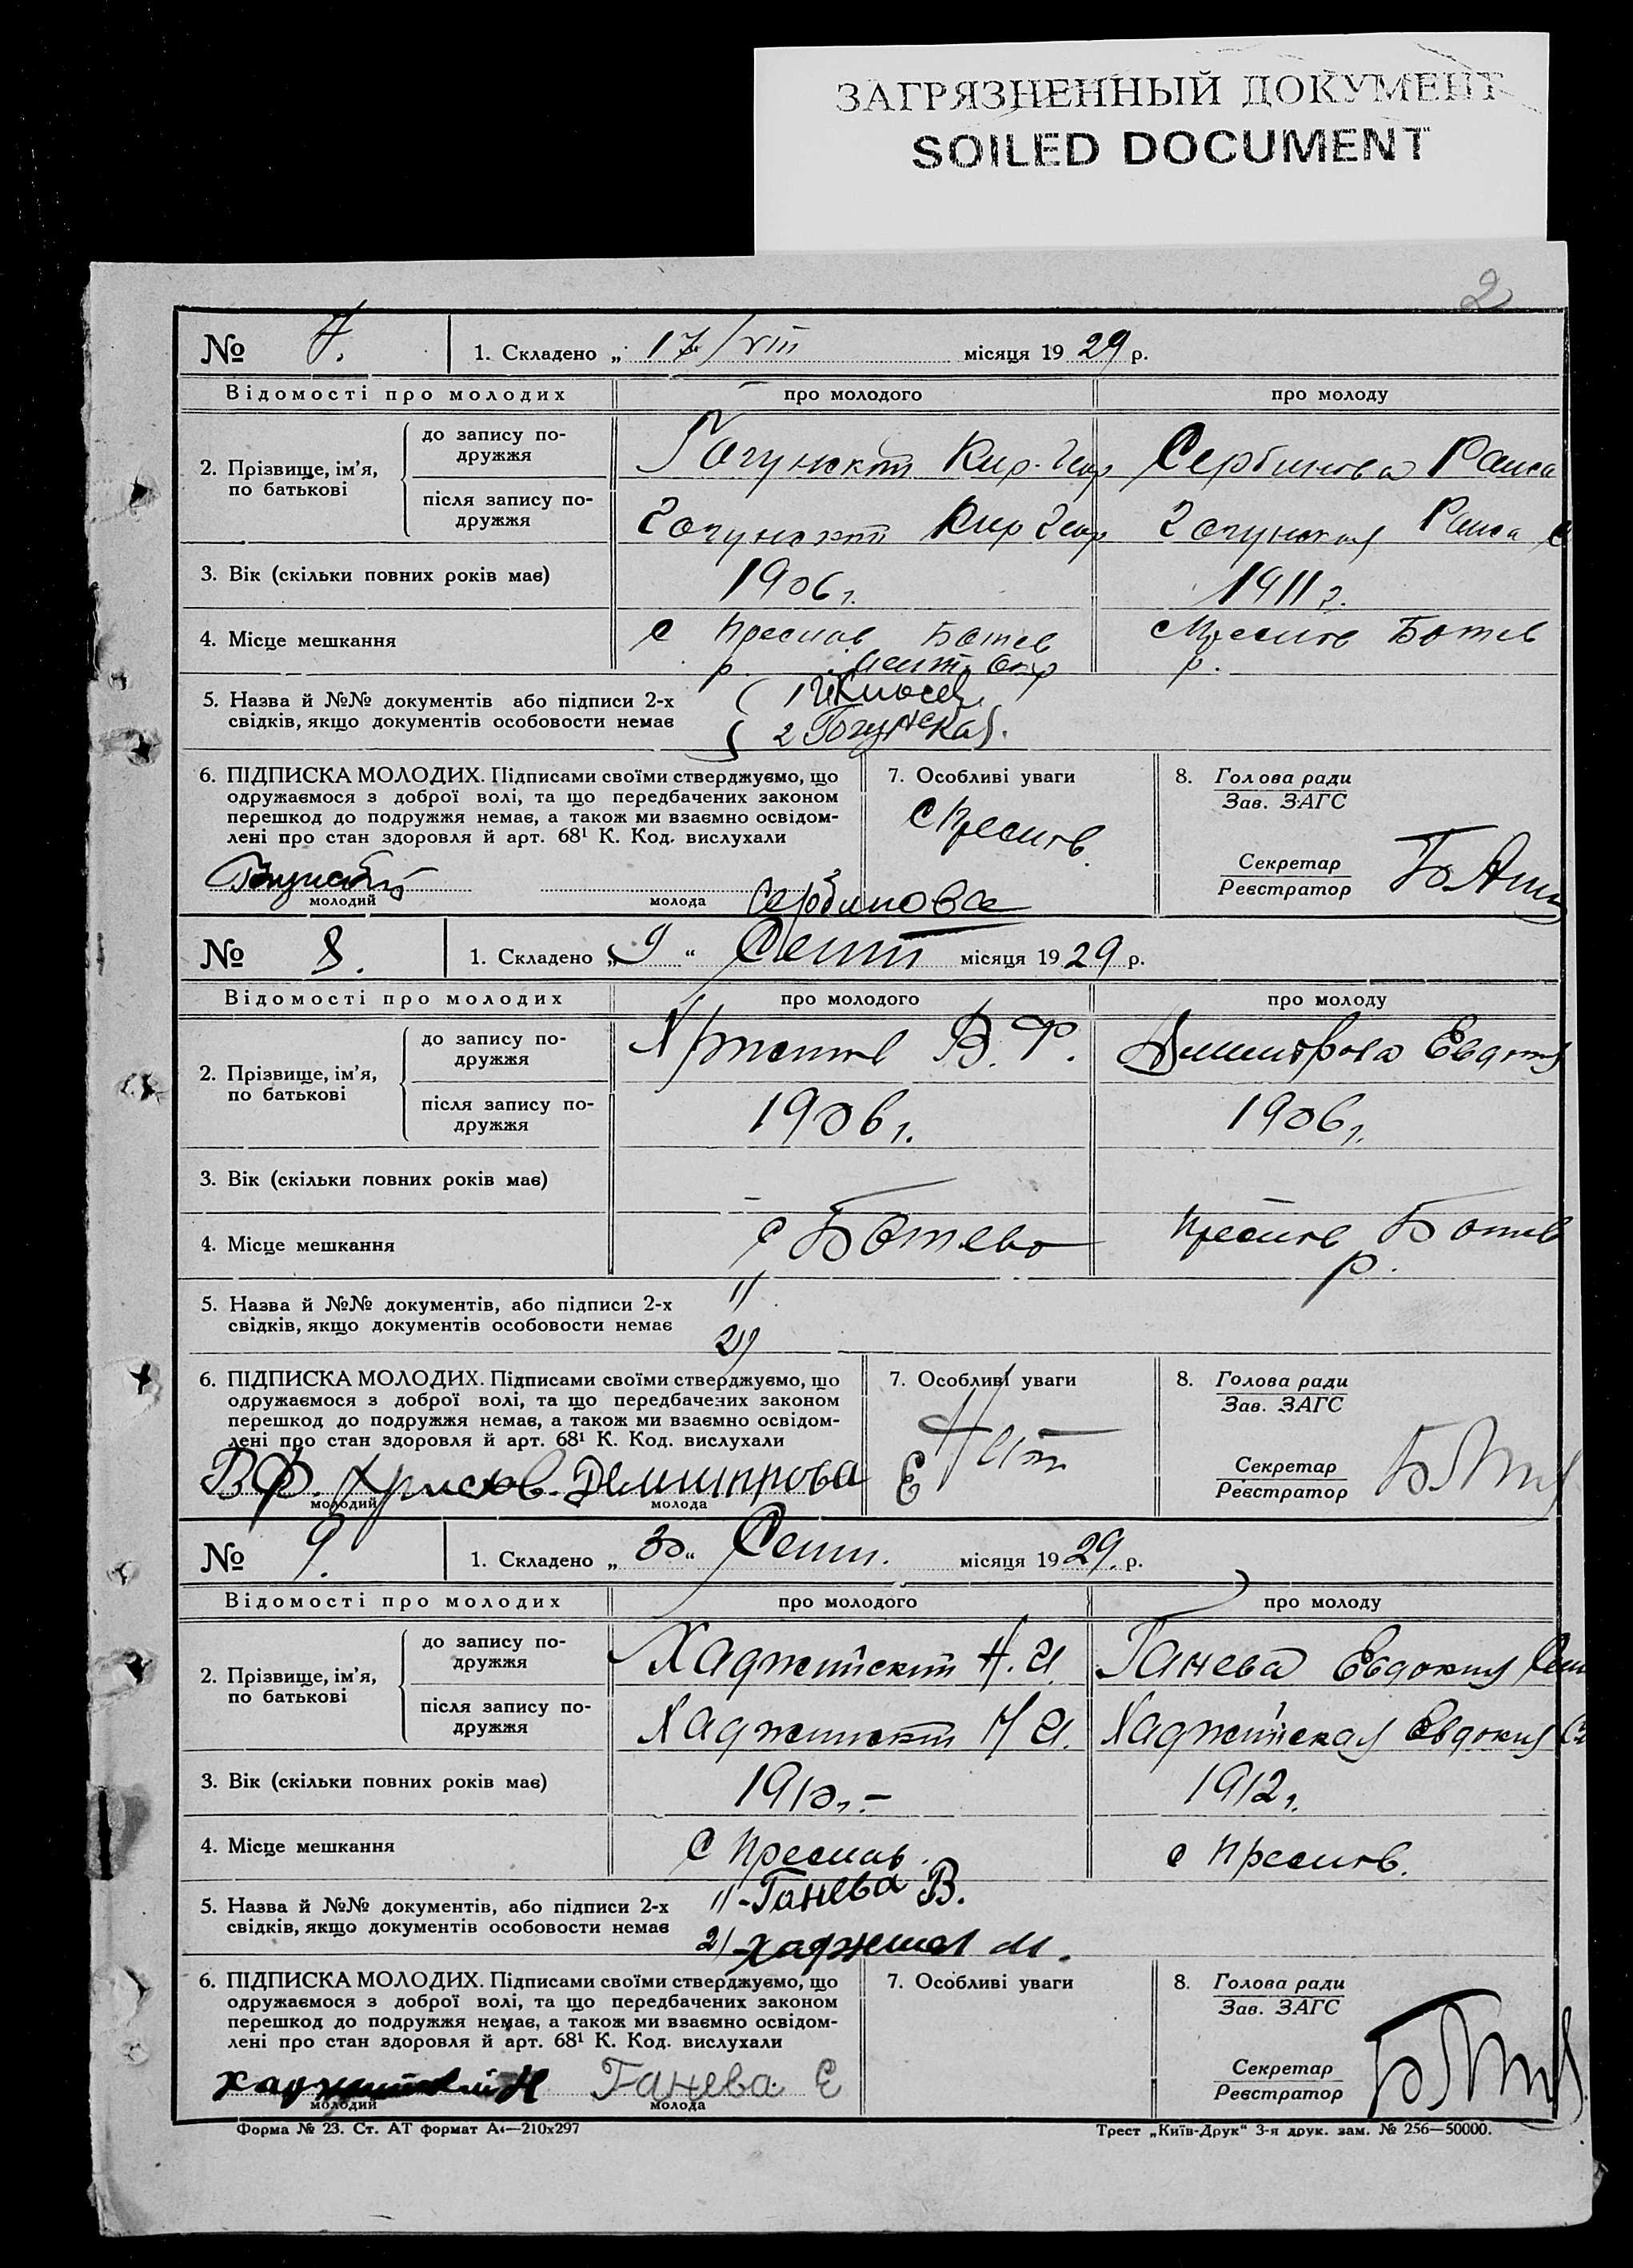 ЗАГРЯЗНЕННЫЙ ДОКУМЕНТ
SOILED DOCUMENT
2
№ 7. 1. Складено „ 17/VIII місяця 1929 р.
Відомості про молодих про молодого про молоду
2. Прізвище, ім’я, по батькові
до запису по-
дружжя
Кир. Геор Сербинова Раиса
після запису по-
дружжя
Кир Геор Раиса С
3. Вік (скільки повних років має) 1906 г. 1911 г.
4. Місце мешкання с Преслав Ботев
р. с Преслав Ботев р.
5. Назва й №№ документів або підписи 2-х
свідків, якщо документів особовости немає
1
2
6. ПІДПИСКА МОЛОДИХ. Підписами своїми стверджуємо, що
одружаємося з доброї волі, та що передбачених законом
перешкод до подружжя немає, а також ми взаємно освідом-
лені про стан здоровля й арт. 68¹ К. Код. вислухали
молодий молода Сербинова
7. Особливі уваги
с Преслав.
8. Голова ради
Зав. ЗАГС
Секретар
Реєстратор
№ 8. 1. Складено „9“ Сент місяця 1929 р.
Відомості про молодих про молодого про молоду
2. Прізвище, ім’я, по батькові
до запису по-
дружжя
Христов В. Ф. Димитрова Евдокия
після запису по-
дружжя
1906 г. 1906 г.
3. Вік (скільки повних років має)
4. Місце мешкання с Ботево Преслав Ботев
р.
5. Назва й №№ документів, або підписи 2-х
свідків, якщо документів особовости немає
1)
2)
6. ПІДПИСКА МОЛОДИХ. Підписами своїми стверджуємо, що
одружаємося з доброї волі, та що передбачених законом
перешкод до подружжя немає, а також ми взаємно освідом-
лені про стан здоровля й арт. 68¹ К. Код. вислухали
В Ф. Христов Демитрова Е
молодий молода
7. Особливі уваги
Нет
8. Голова ради
Зав. ЗАГС
Секретар
Реєстратор
№ 9. 1. Складено „30“ Сент. місяця 1929. р.
Відомості про молодих про молодого про молоду
2. Прізвище, ім’я, по батькові
до запису по-
дружжя
Хаджийский Н. И. Ганева Евдокия
після запису по-
дружжя
Хаджийский Н И. Хаджийская Евдокия
3. Вік (скільки повних років має) 1910 г. – 1912 г.
4. Місце мешкання с Преслав. с Преслав.
5. Назва й №№ документів, або підписи 2-х
свідків, якщо документів особовости немає
1) - Ганева В.
2) - М.
6. ПІДПИСКА МОЛОДИХ. Підписами своїми стверджуємо, що
одружаємося з доброї волі, та що передбачених законом
перешкод до подружжя немає, а також ми взаємно освідом-
лені про стан здоровля й арт. 68¹ К. Код. вислухали
Н Ганева Е
молодий молода
7. Особливі уваги
8. Голова ради
Зав. ЗАГС
Секретар
Реєстратор
Форма № 23. Ст. АТ формат А₄—210х297
Трест „Київ-Друк“ 3-я друк. зам. № 256—50000.